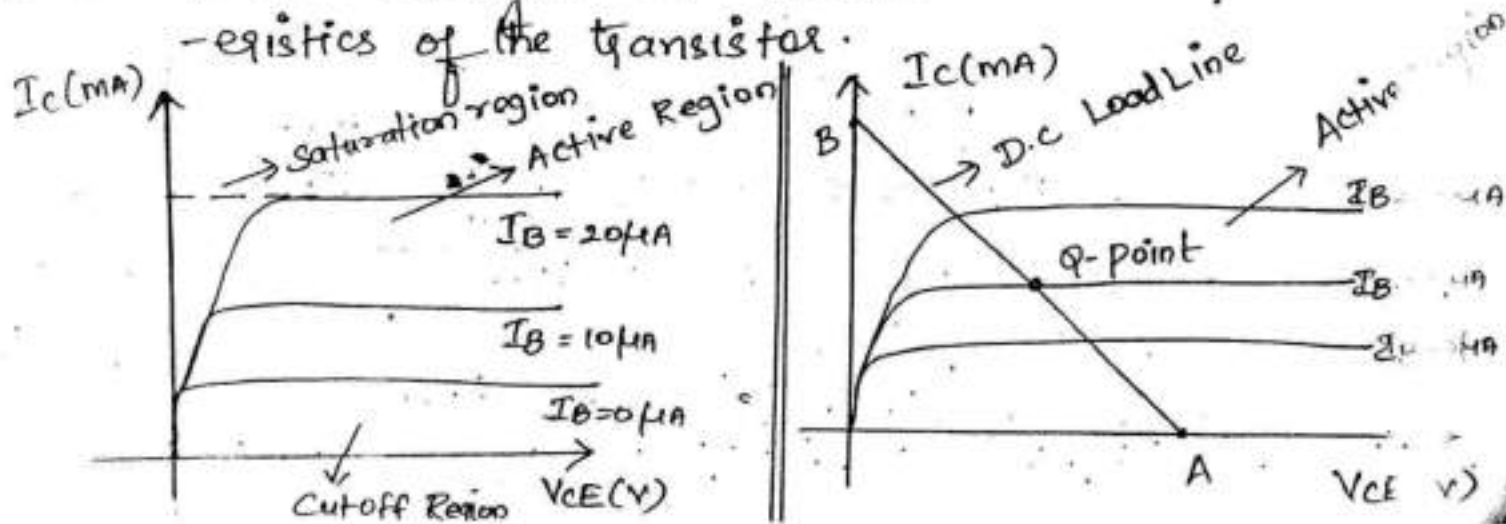 -eristics of the transistor.
Ic(mA)
Saturation region
Active Region
IB = 20μA
IB = 10μA
IB=0μA
Cutoff Region
VCE(V)
Ic(mA)
B
D.C Load Line
Active
IB
Q-point
IB
A
VCE